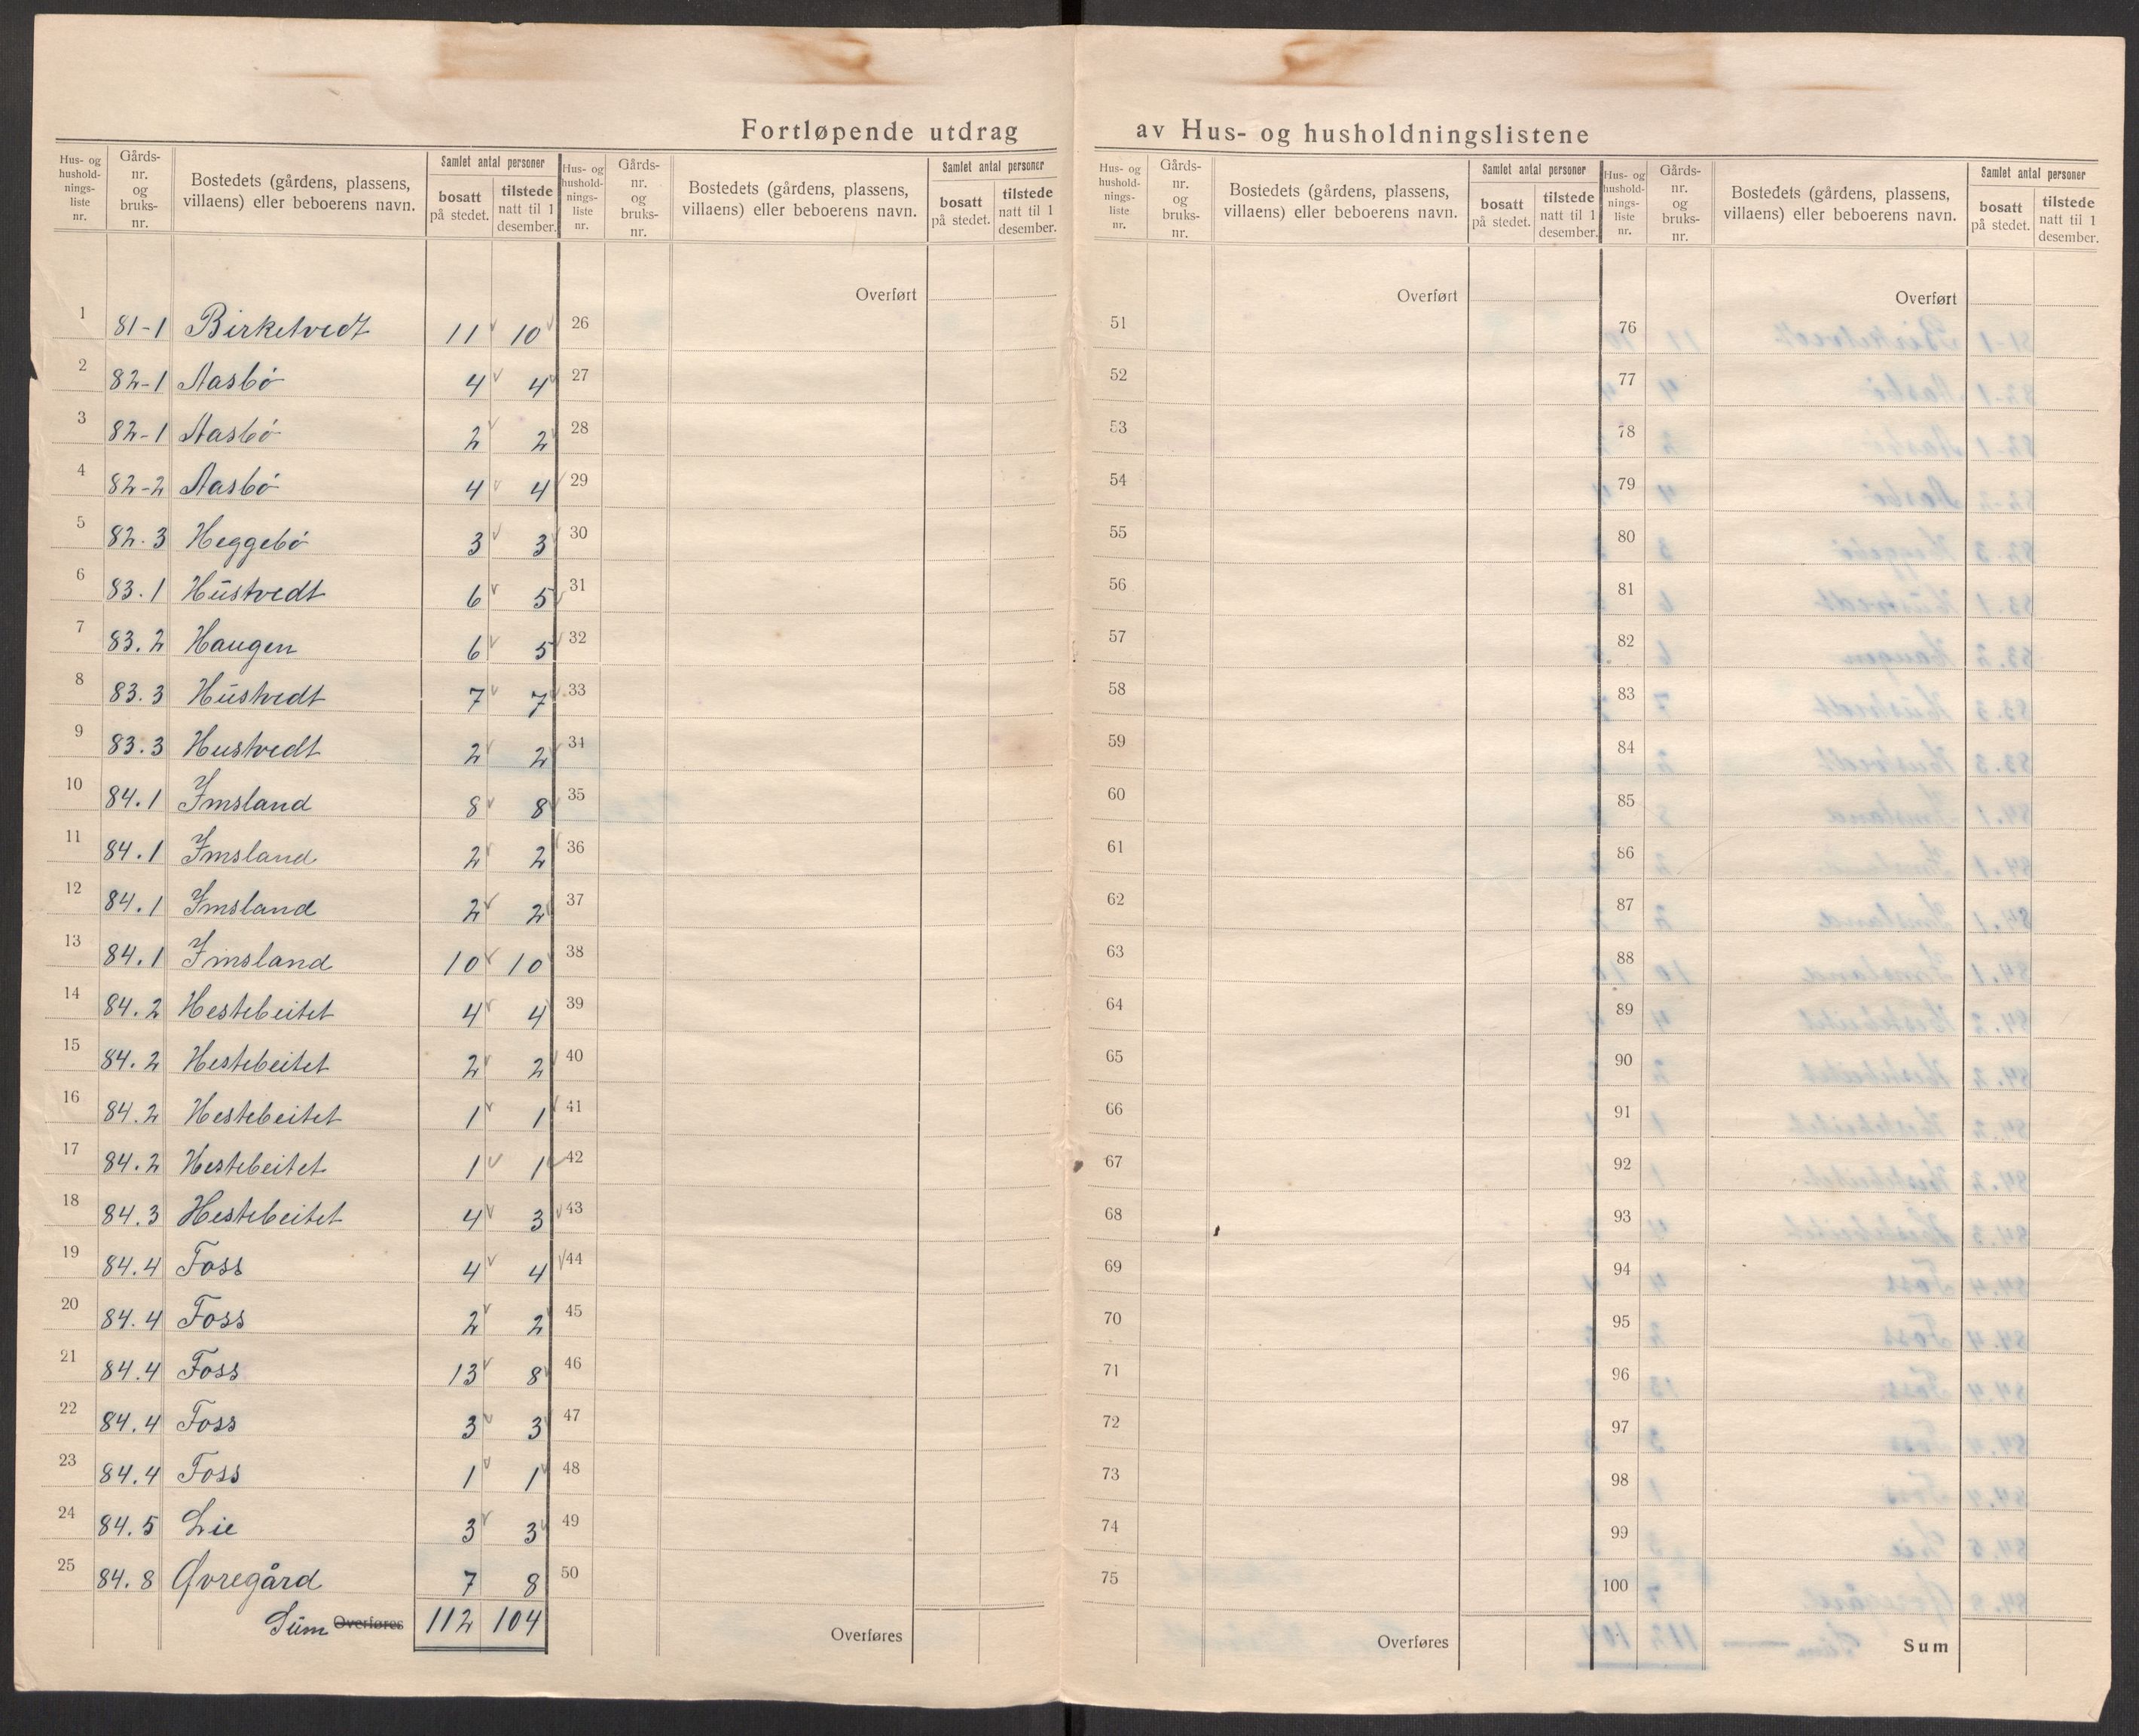 Fortløpende utdrag av Hus- og husholdningslistene
Hus- og husholdningsliste nr. | Gårds- nr. og bruks- nr. | Bostedets (gårdens, plassens, villaens) eller beboerens navn. | Samlet antal personer | bosatt på stedet. | tilstede natt til 1 desember.
Hus- og husholdningsliste nr. | Gårds- nr. og bruks- nr. | Bostedets (gårdens, plassens, villaens) eller beboerens navn. | Samlet antal personer | bosatt på stedet. | tilstede natt til 1 desember.
Hus- og husholdningsliste nr. | Gårds- nr. og bruks- nr. | Bostedets (gårdens, plassens, villaens) eller beboerens navn. | Samlet antal personer | bosatt på stedet. | tilstede natt til 1 desember.
Hus- og husholdningsliste nr. | Gårds- nr. og bruks- nr. | Bostedets (gårdens, plassens, villaens) eller beboerens navn. | Samlet antal personer | bosatt på stedet. | tilstede natt til 1 desember.
Overført Overført Overført
1 81-1 Birketvedt 11 10 26 51 76
2 82-1 Aasbø 4 4 27 52 77
3 82-1 Aasbø 2 2 28 53 78
4 82-2 Aasbø 4 4 29 54 79
5 82.3 Heggebø 3 3 30 55 80
6 83.1 Hustvedt 6 5 31 56 81
7 83.2 Haugen 6 5 32 57 82
8 83.3 Hustvedt 7 7 33 58 83
9 83.3 Hustvedt 2 2 34 59 84
10 84.1 Imsland 8 8 35 60 85
11 84.1 Imsland 2 2 36 61 86
12 84.1 Imsland 2 2 37 62 87
13 84.1 Imsland 10 10 38 63 88
14 84.2 Hestebeitet 4 4 39 64 89
15 84.2 Hestebeitet 2 2 40 65 90
16 84.2 Hestebeitet 1 1 41 66 91
17 84.2 Hestebeitet 1 1 42 67 92
18 84.3 Hestebeitet 4 3 43 68 93
19 84.4 Foss 4 4 44 69 94
20 84.4 Foss 2 2 45 70 95
21 84.4 Foss 13 8 46 71 96
22 84.4 Foss 3 3 47 72 97
23 84.4 Foss 1 1 48 73 98
24 84.5 Lie 3 3 49 74 99
25 84.8 Øvregård 7 8 50 75 100
Sum Overføres 112 104 Overføres Overføres Sum